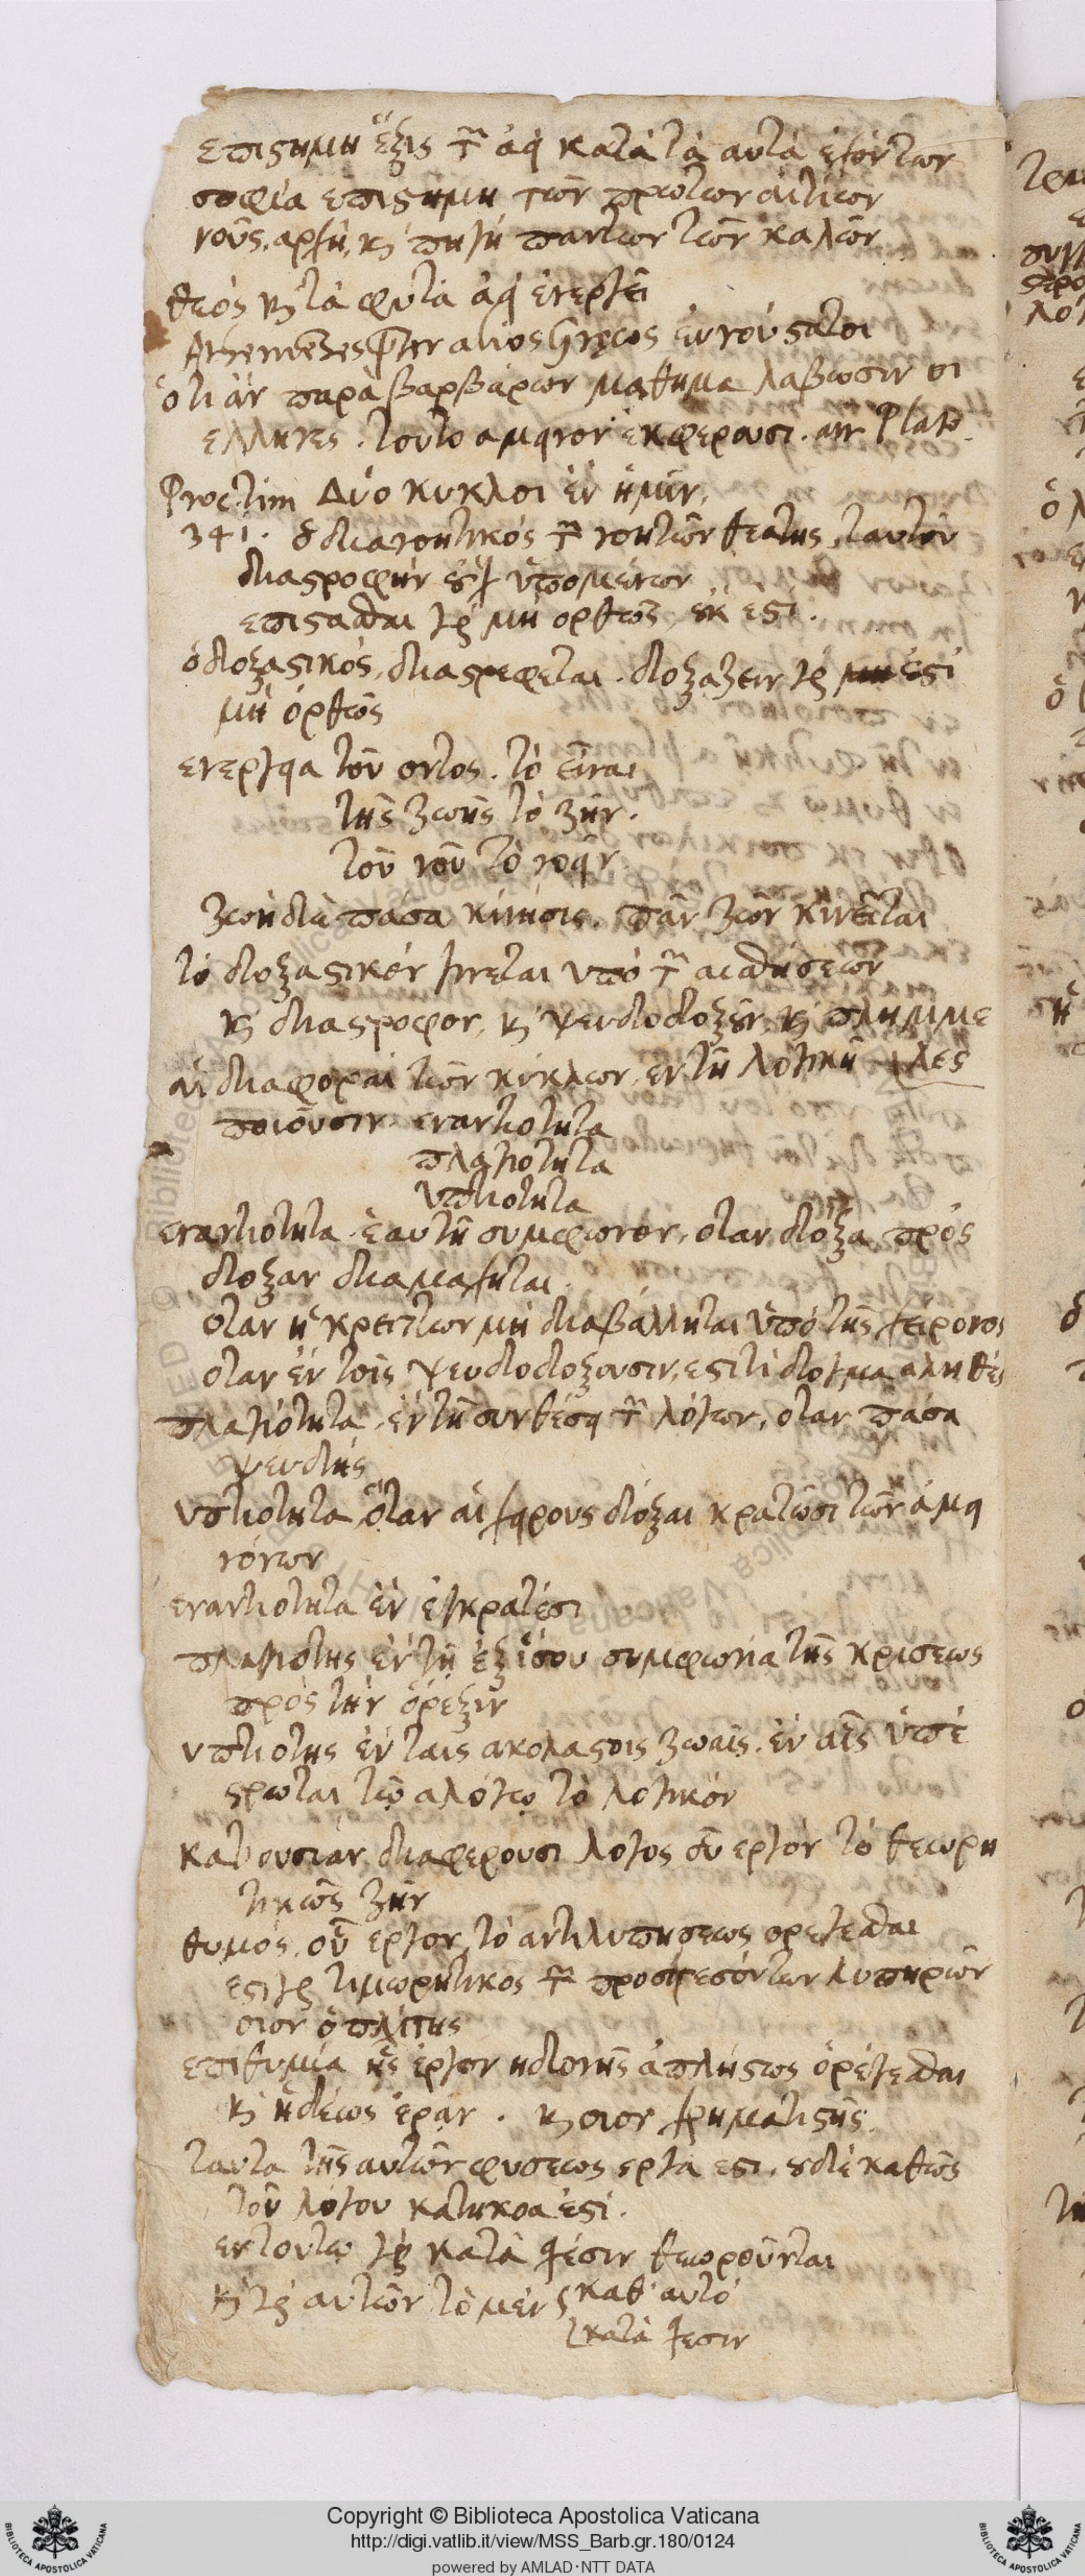 επιστημη ἕξις τῶν ἀεὶ κατὰ τὰ αυτὰ ἐχόντων
σοφία επιστημη των πρωτων αιτίων
νοῦς. αρχή, καὶ πηγή παντων τῶν καλῶν
θεός καὶ τὰ φυτὰ ἀεὶ ἐνεργεῖ
ὅτι ἂν παρὰ βαρβάρων μαθημα λαβωσιν οι
ελληνες. τουτο αμεινον ἐκφερουσι. Plato
Proc. tim Δύο κυκλοι ἐν ἡμῖν.
341. ὁ διανοητικός τῶν νοητῶν θεατης, ταυτὸν
διαστροφὴν οὐχ ὑπομένων
επιστασθαι γὰρ μὴ ορθῶς, οὐκ εστι.
ὁ δοξαστικός, διαστρεφεται. δοξαζειν γὰρ ἐστί
μὴ ὀρθῶς
ενεργεια τοῦ οντος. τὸ εἶναι
τῆς ζωῆς τὸ ζῆν.
τοῦ νοῦ τὸ νοεῖν
ζωὴ διὰ πασα κίνησις. πᾶν ζῶον κινεῖται
τὸ δοξαστικὸν γινεται υπὸ τῶν αισθήσεων
καὶ διαστροφον, καὶ ψευδοδοξοῦν, καὶ πλημμε
λες
αἱ διαφοραὶ τῶν κύκλων, εν τῇ λογικῇ
ποιοῦσιν εναντιοτητα
πλαγιοτητα
υπτιοτητα
εναντιοτητα ἑαυτῇ συμφωνον, οταν δόξα πρὸς
δοξαν διαμαχηται.
οταν ἡ κρειττων μὴ διαβάλληται ὑπὸ τῆς χείρονος
οταν ἐν τοῖς ψευδοδοξουσιν, εστι τὶ δογμα αληθὲς
πλαγιότητα ἐν τῇ συνθέσει τῶν λόγων, οταν πᾶσα
ψευδής
υπτιοτητα ὅταν αἱ χειρους δόξαι κρατῶσι τῶν ἀμει
νόνων
εναντιοτητα ἐν ἐγκρατέσι
πλαγιοτης ἐν τῇ ἐξ ἴσου συμφωνία τῆς κρισεως
πρὸς τὴν ὄρεξιν
υπτιοτης ἐν ταις ακολαστοις ζωαῖς. ἐν αἷς ὑπέ
στρωται τῷ αλόγῳ τὸ λογικόν
κατ ουσιαν διαφερουσι λογος οὗ εργον τὸ θεωρη
τικῶς ζῆν
θυμός. οὗ εργον, τὸ αντιλυπησεως ορεγεσθαι
εστι γὰρ τιμωρητικος τῶν προσπεσόντων λυπηρῶν
οιον ὁ πλίτης
επιθυμία ἧς ἔργον ηδονῆς ἀπλήστως ὀρέγεσθαι
καὶ ἡδέως ἐρᾶν. καὶ οιον χρηματιστής.
ταυτα τῆς αυτῶν φυσεως εργα εστι. οὐδὲ καθὼς
τοῦ λόγου κατηκοα ἐστί.
εν τουτω γὰρ κατὰ σχέσιν θεωροῦνται
αυτῶν τὸ μὲν καθ' αυτὸ
κατὰ σχεσιν
Copyright © Biblioteca Apostolica Vaticana
http://digi.vatlib.it/view/MSS_Barb.gr.180/0124
powered by AMLAD·NTT DATA